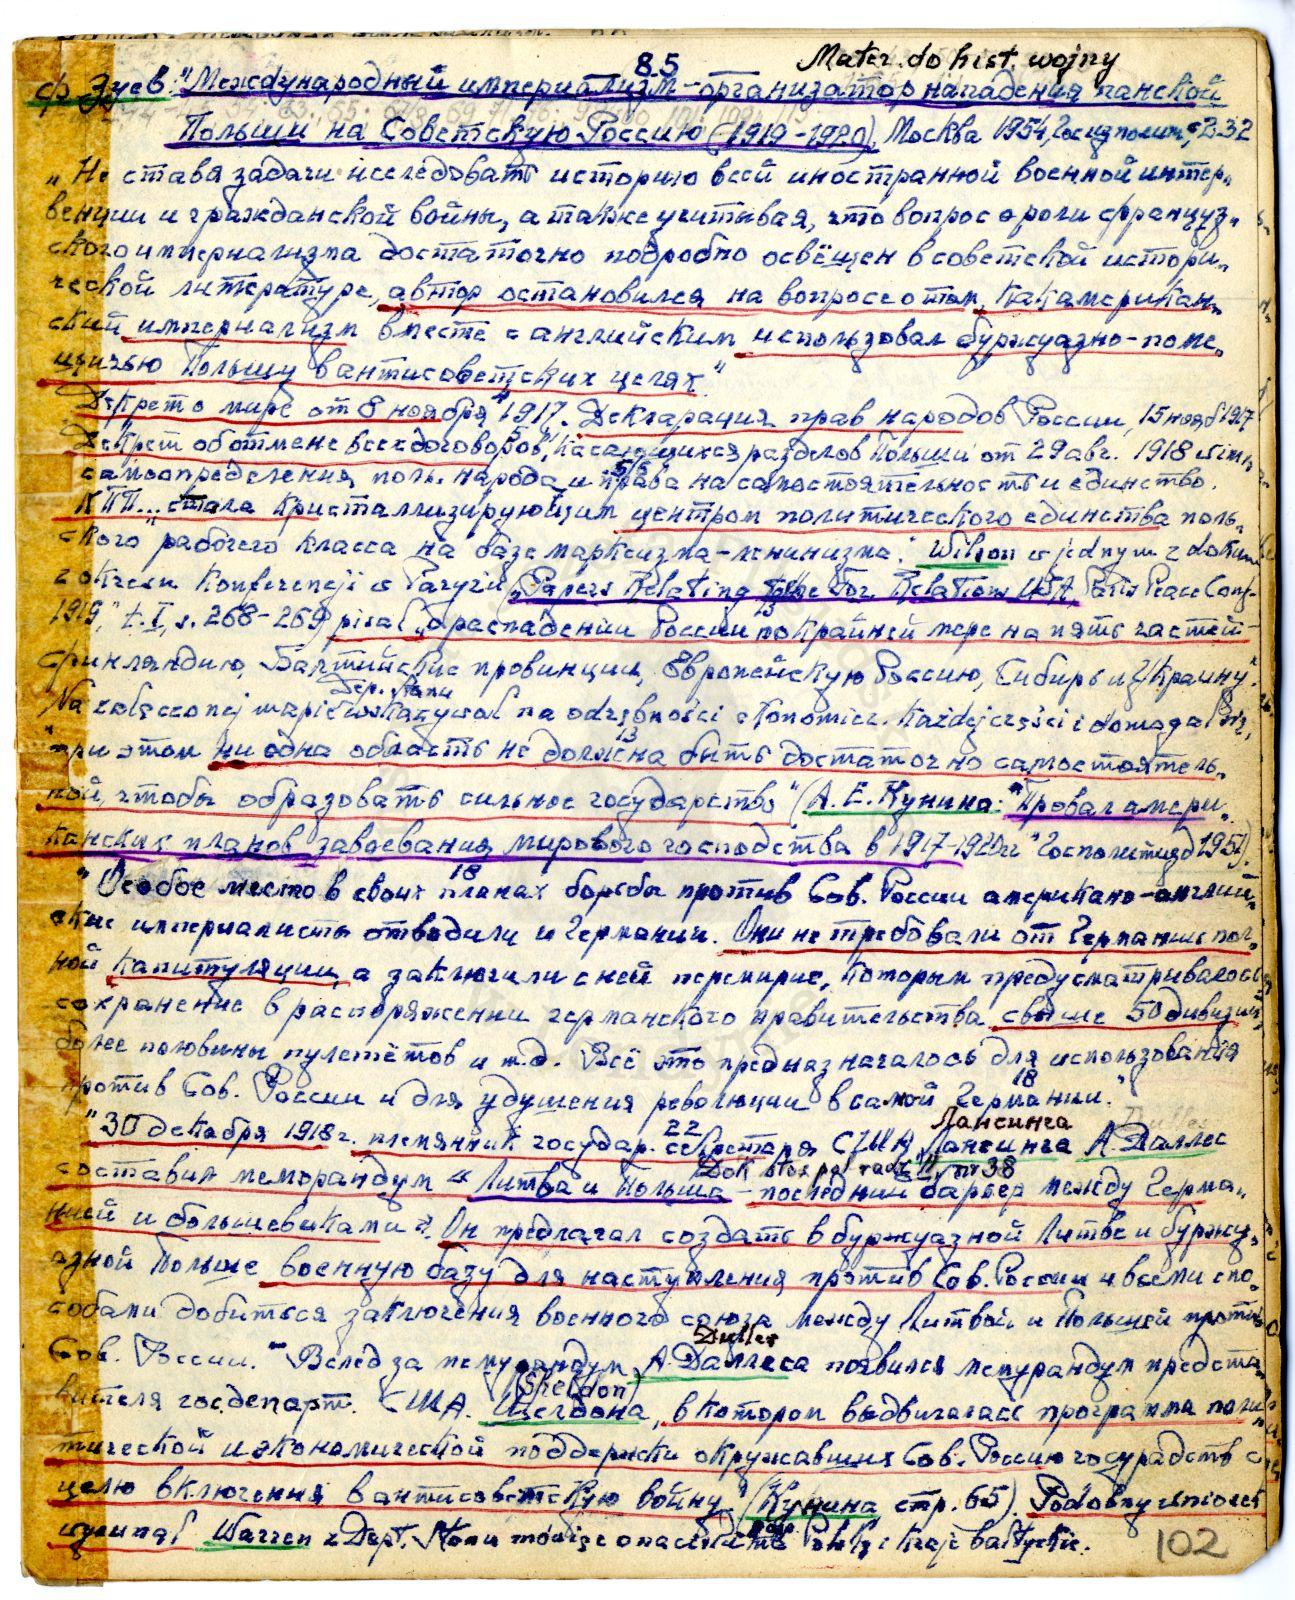 85 Mater. do hist. wojny
Ф Зуев. "Международный империализм - организатор нападения панской
Польши на Советскую Россию (1919-1920), Москва 1954, Госиздполит,
"Не ставя задачи исследовать историю всей иностранной военной интер„
венции и гражданской войны, а также учитывая, что вопрос о роли француз„
ского империализма достаточно подробно освещён в советской истори„
ческой литературе, автор остановился на вопросе о том, как американ„
ский империализм вместе с английским использовал буржуазно-поме„
щичью Польшу в антисоветских целях."
Декрет о мире от 8 ноября 1917. Декларация прав народов России, 15 нояб 1917
Декрет об отмене всех договоров, касающихся разделов Польши от 29 авг. 1918
самоопределения поль. народа и права на самостоятельность и единство.
5/6
КПП... "стала кристаллизирующим центром политического единства поль„
ского рабочего класса на базе марксизма-ленинизма." Wilson w jednym z dokum
z okresu Konferencji w Paryżu ("Papers Relating to the For. Relations USA, Paris Peace Conf-
1919," t. I, s. 268-269) pisał "о распадении России по крайней мере на пять частей -
13
Финляндию, Балтийские провинции, Европейскую Россию, Сибирь и Украину".
Dep. Stanu
Na załączonej mapie wskazywał na odrębności ekonomicz. każdej części i domagał się,
"при этом ни одна область не должна быть достаточно самостоятель„
13
ной, чтобы образовать сильное государство" (А. Е. Кунина: "Провал амери„
канских планов завоевания мирового господства в 1917-1920гг" Госполитизд 1951).
18
"Особое место в своих планах борьбы против Сов. России американо-англий„
ские империалисты отводили и Германии. Они не требовали от Германии пол„
ной капитуляции, а заключили с ней перемирие, которым предусматривалось
сохранение в распоряжении германского правительства свыше 50 дивизий
более половины пулемётов и т.д. Всё это предназначалось для использования
против Сов. России и для удушения революции в самой Германии."
18
Лансинга
"30 декабря 1918 г. племянник государ. секретаря США Лансинга А. Даллес
22
Dok nr 38
составил меморандум "Литва и Польша - последний барьер между Герма„
нией и большевиками". Он предлагал создать в буржуазной Литве и буржу„
азной Польше военную базу для наступления против Сов. России и всеми спо„
собами добиться заключения военного союза между Литвой и Польшей против
Dulles
Сов. России." "Вслед за мемурандум А. Даллеса появился мемурандум предста
(Sheldon)
вителя госдепарт. США. Шелдона, в котором выдвигалась программа поли
тической и экономической поддержки окружавших Сов. Россию государств с
целью включения в антисоветскую войну" (Кунина стр. 65). Podobny wniosek
wysunął Warren z Dept. Stanu mówiąc o kraje bałtyckie.
102